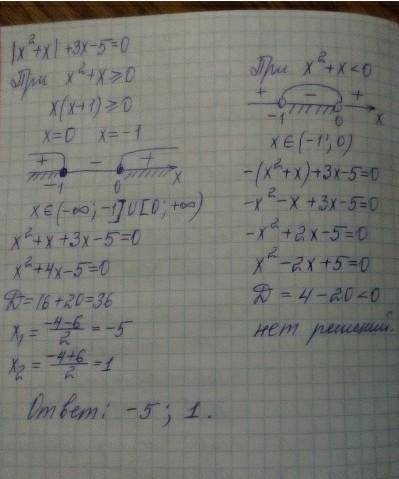 |x²+x|+3x-5=0
При x²+x≥0
x(x+1)≥0
x=0 x=-1
+ - +
-1 0 x
x∈(-∞; -1]∪[0; +∞)
x²+x+3x-5=0
x²+4x-5=0
D=16+20=36
x₁=(-4-6)/2=-5
x₂=(-4+6)/2=1
Ответ: -5; 1.
При x²+x<0
+ - +
-1 0 x
x∈(-1; 0)
-(x²+x)+3x-5=0
-x²-x+3x-5=0
-x²+2x-5=0
x²-2x+5=0
D=4-20<0
нет решений.